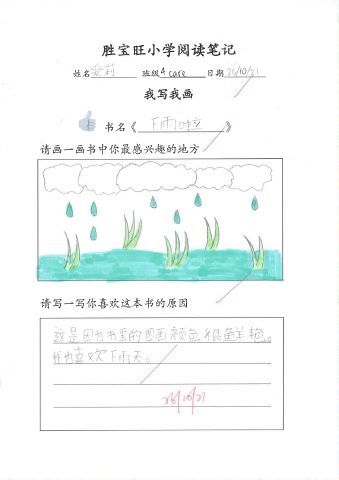 胜宝旺小学阅读笔记
姓名 爱莉 班级 4 care 日期 26/10/21
我写我画
书名《 下雨啦 》
请画一画书中你最感兴趣的地方
请写一写你喜欢这本书的原因
这是因为书里的图画颜色很鱼羊艳。
我也喜欢下雨天。
26/10/21